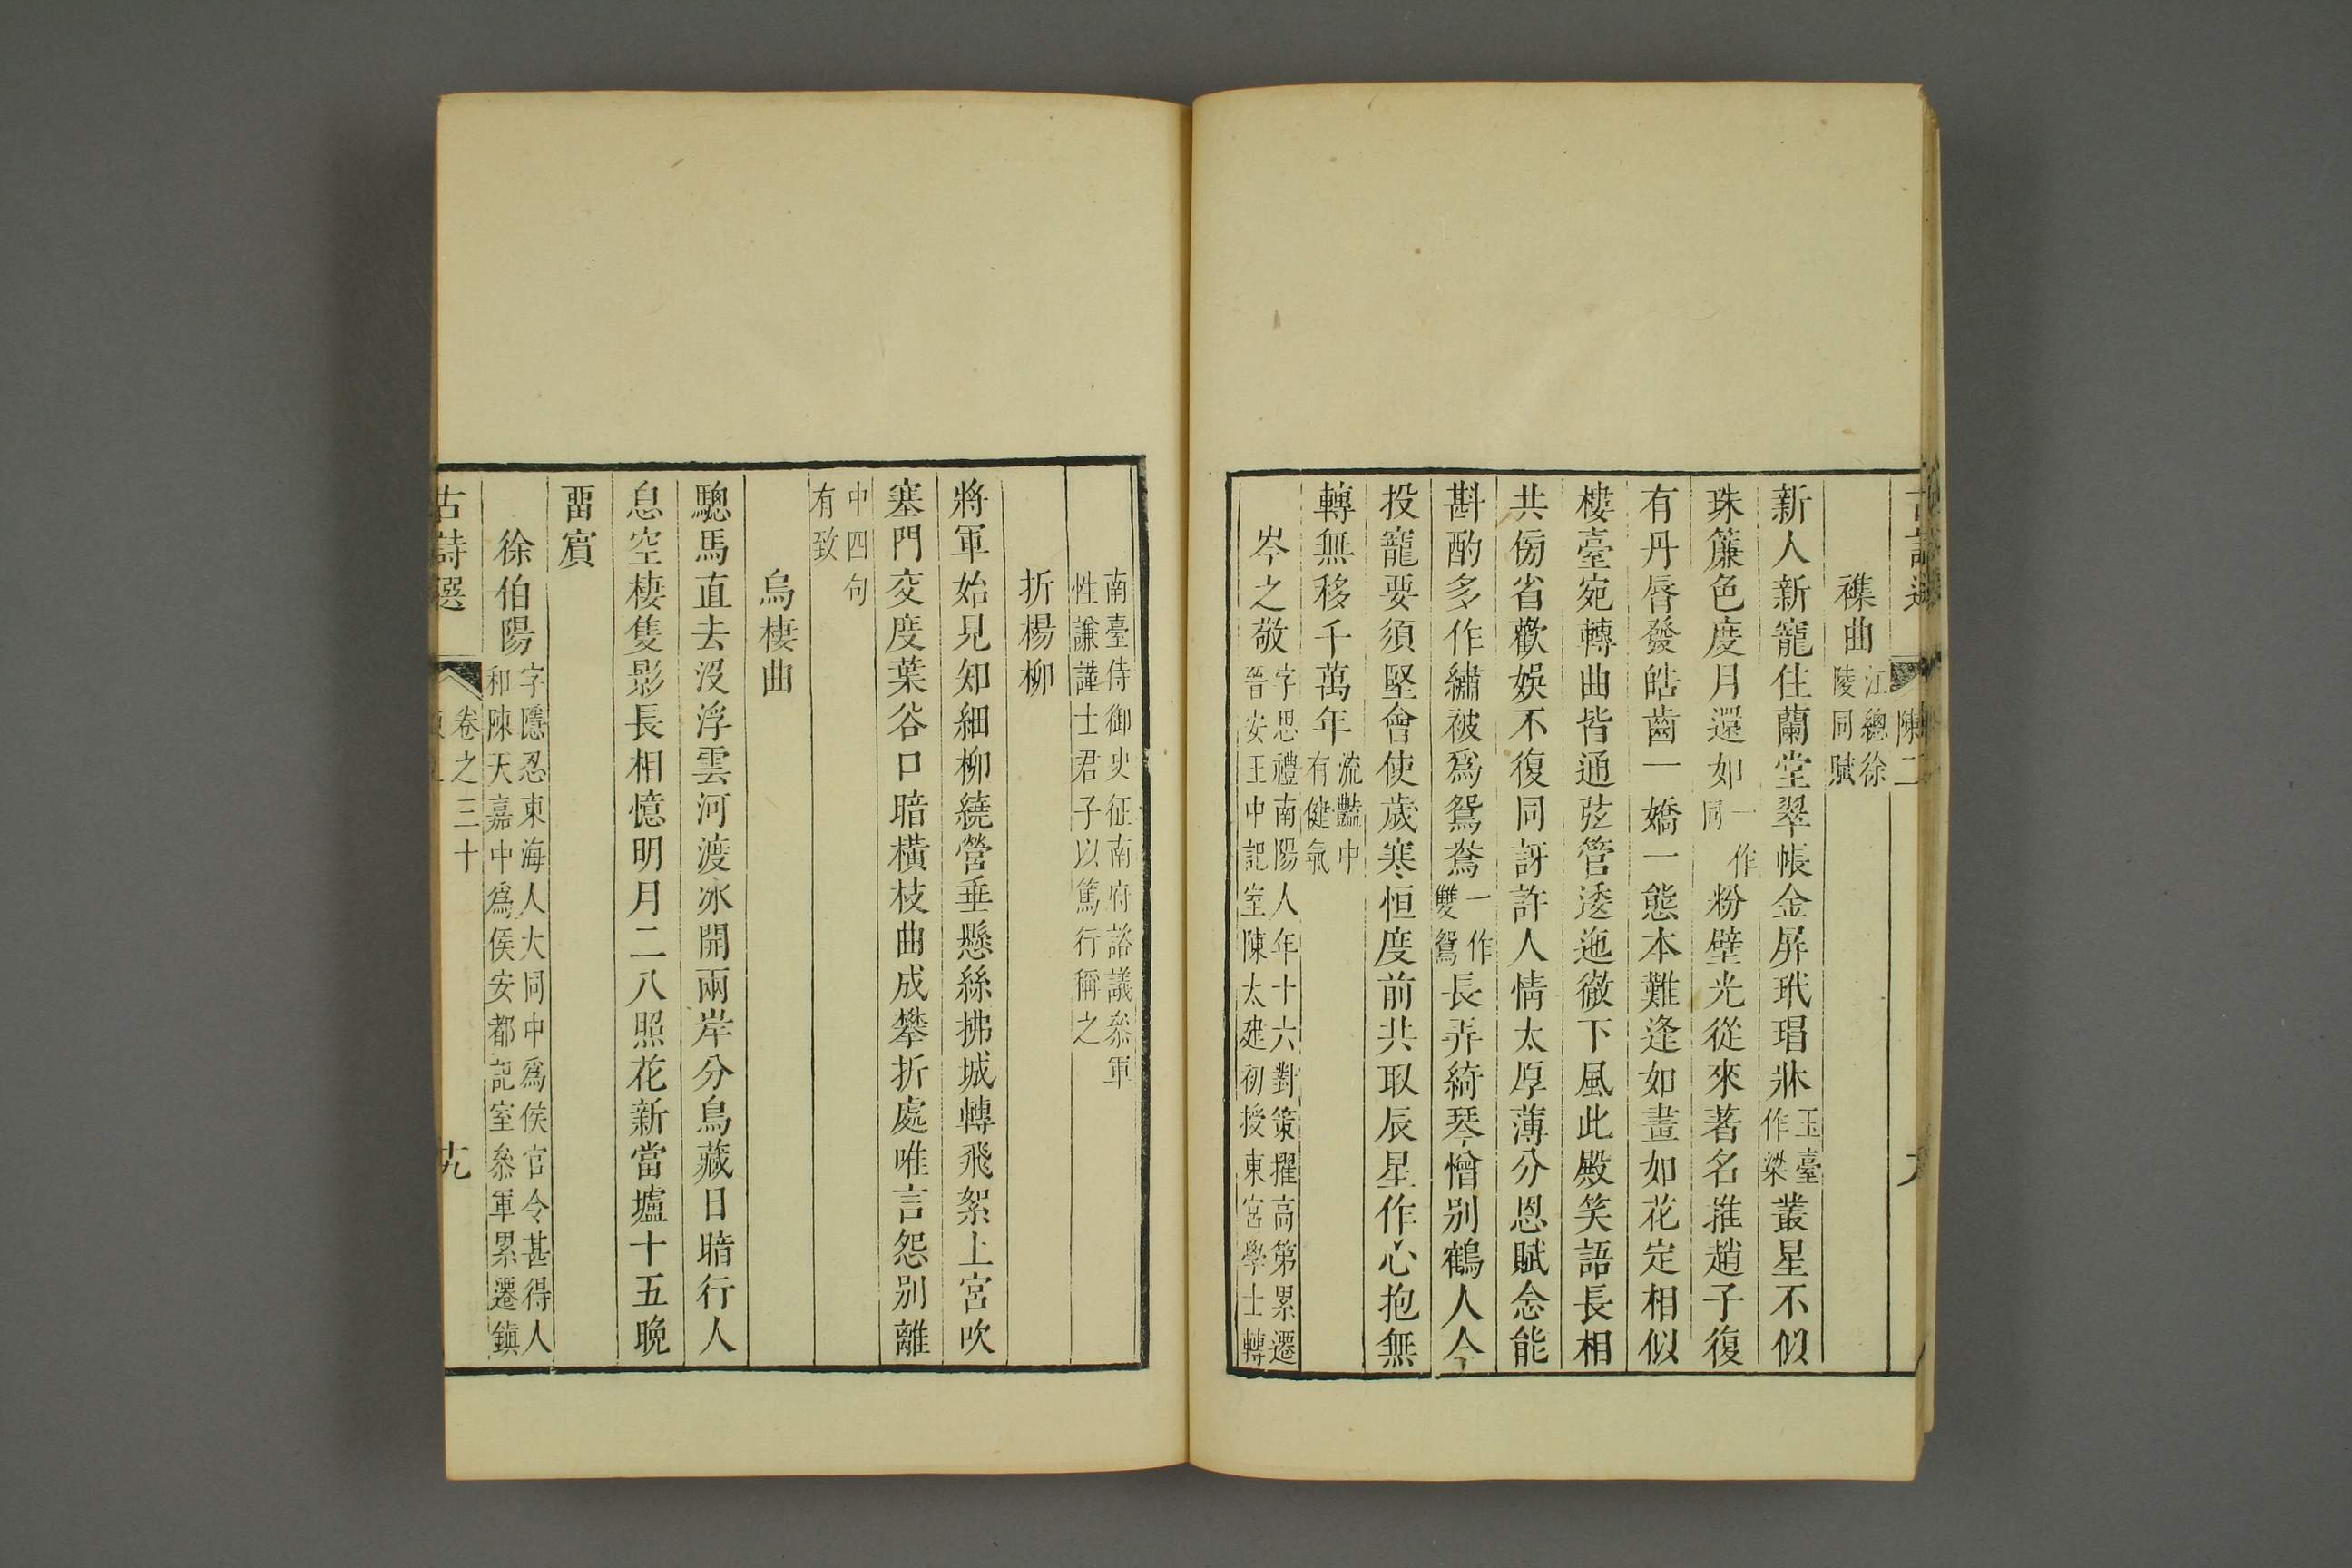 陳二
襍曲江總徐陵同賦
新人新寵住蘭堂翠帳金屏玳瑁牀玉臺作梁叢星不似
珠簾色度月還如一作同粉壁光從來著名推趙子復
有丹脣發皓齒一嬌一態本難逢如畫如花定相似
樓臺宛轉曲皆通弦管逶迤徹下風此殿笑語長相
共傍省歡娛不復同訝許人情太厚薄分恩賦念能
斟酌多作繡被爲鴛鴦一作雙鴛長弄綺琴憎别鶴人今
投寵要須堅會使歲寒恒度前共取辰星作心抱無
轉無移千萬年流豔中有健氣
岑之敬字思禮南陽人年十六對策擢高第累遷晉安王中記室陳太建初授東宮學士轉
南臺侍御史征南府諮議叅軍性謙謹士君子以篤行稱之
折楊柳
將軍始見知細柳繞營垂懸絲拂城轉飛絮上宮吹
塞門交度葉谷口暗橫枝曲成攀折處唯言怨别離
中四句有致
烏棲曲
驄馬直去没浮雲河渡氷開兩岸分烏藏日暗行人
息空棲隻影長相憶明月二八照花新當壚十五晚
畱賔
徐伯陽字隱忍東海人大同中爲侯官令甚得人和陳天嘉中爲侯安都記室叅軍累遷鎮
古詩選
卷之三十
十九